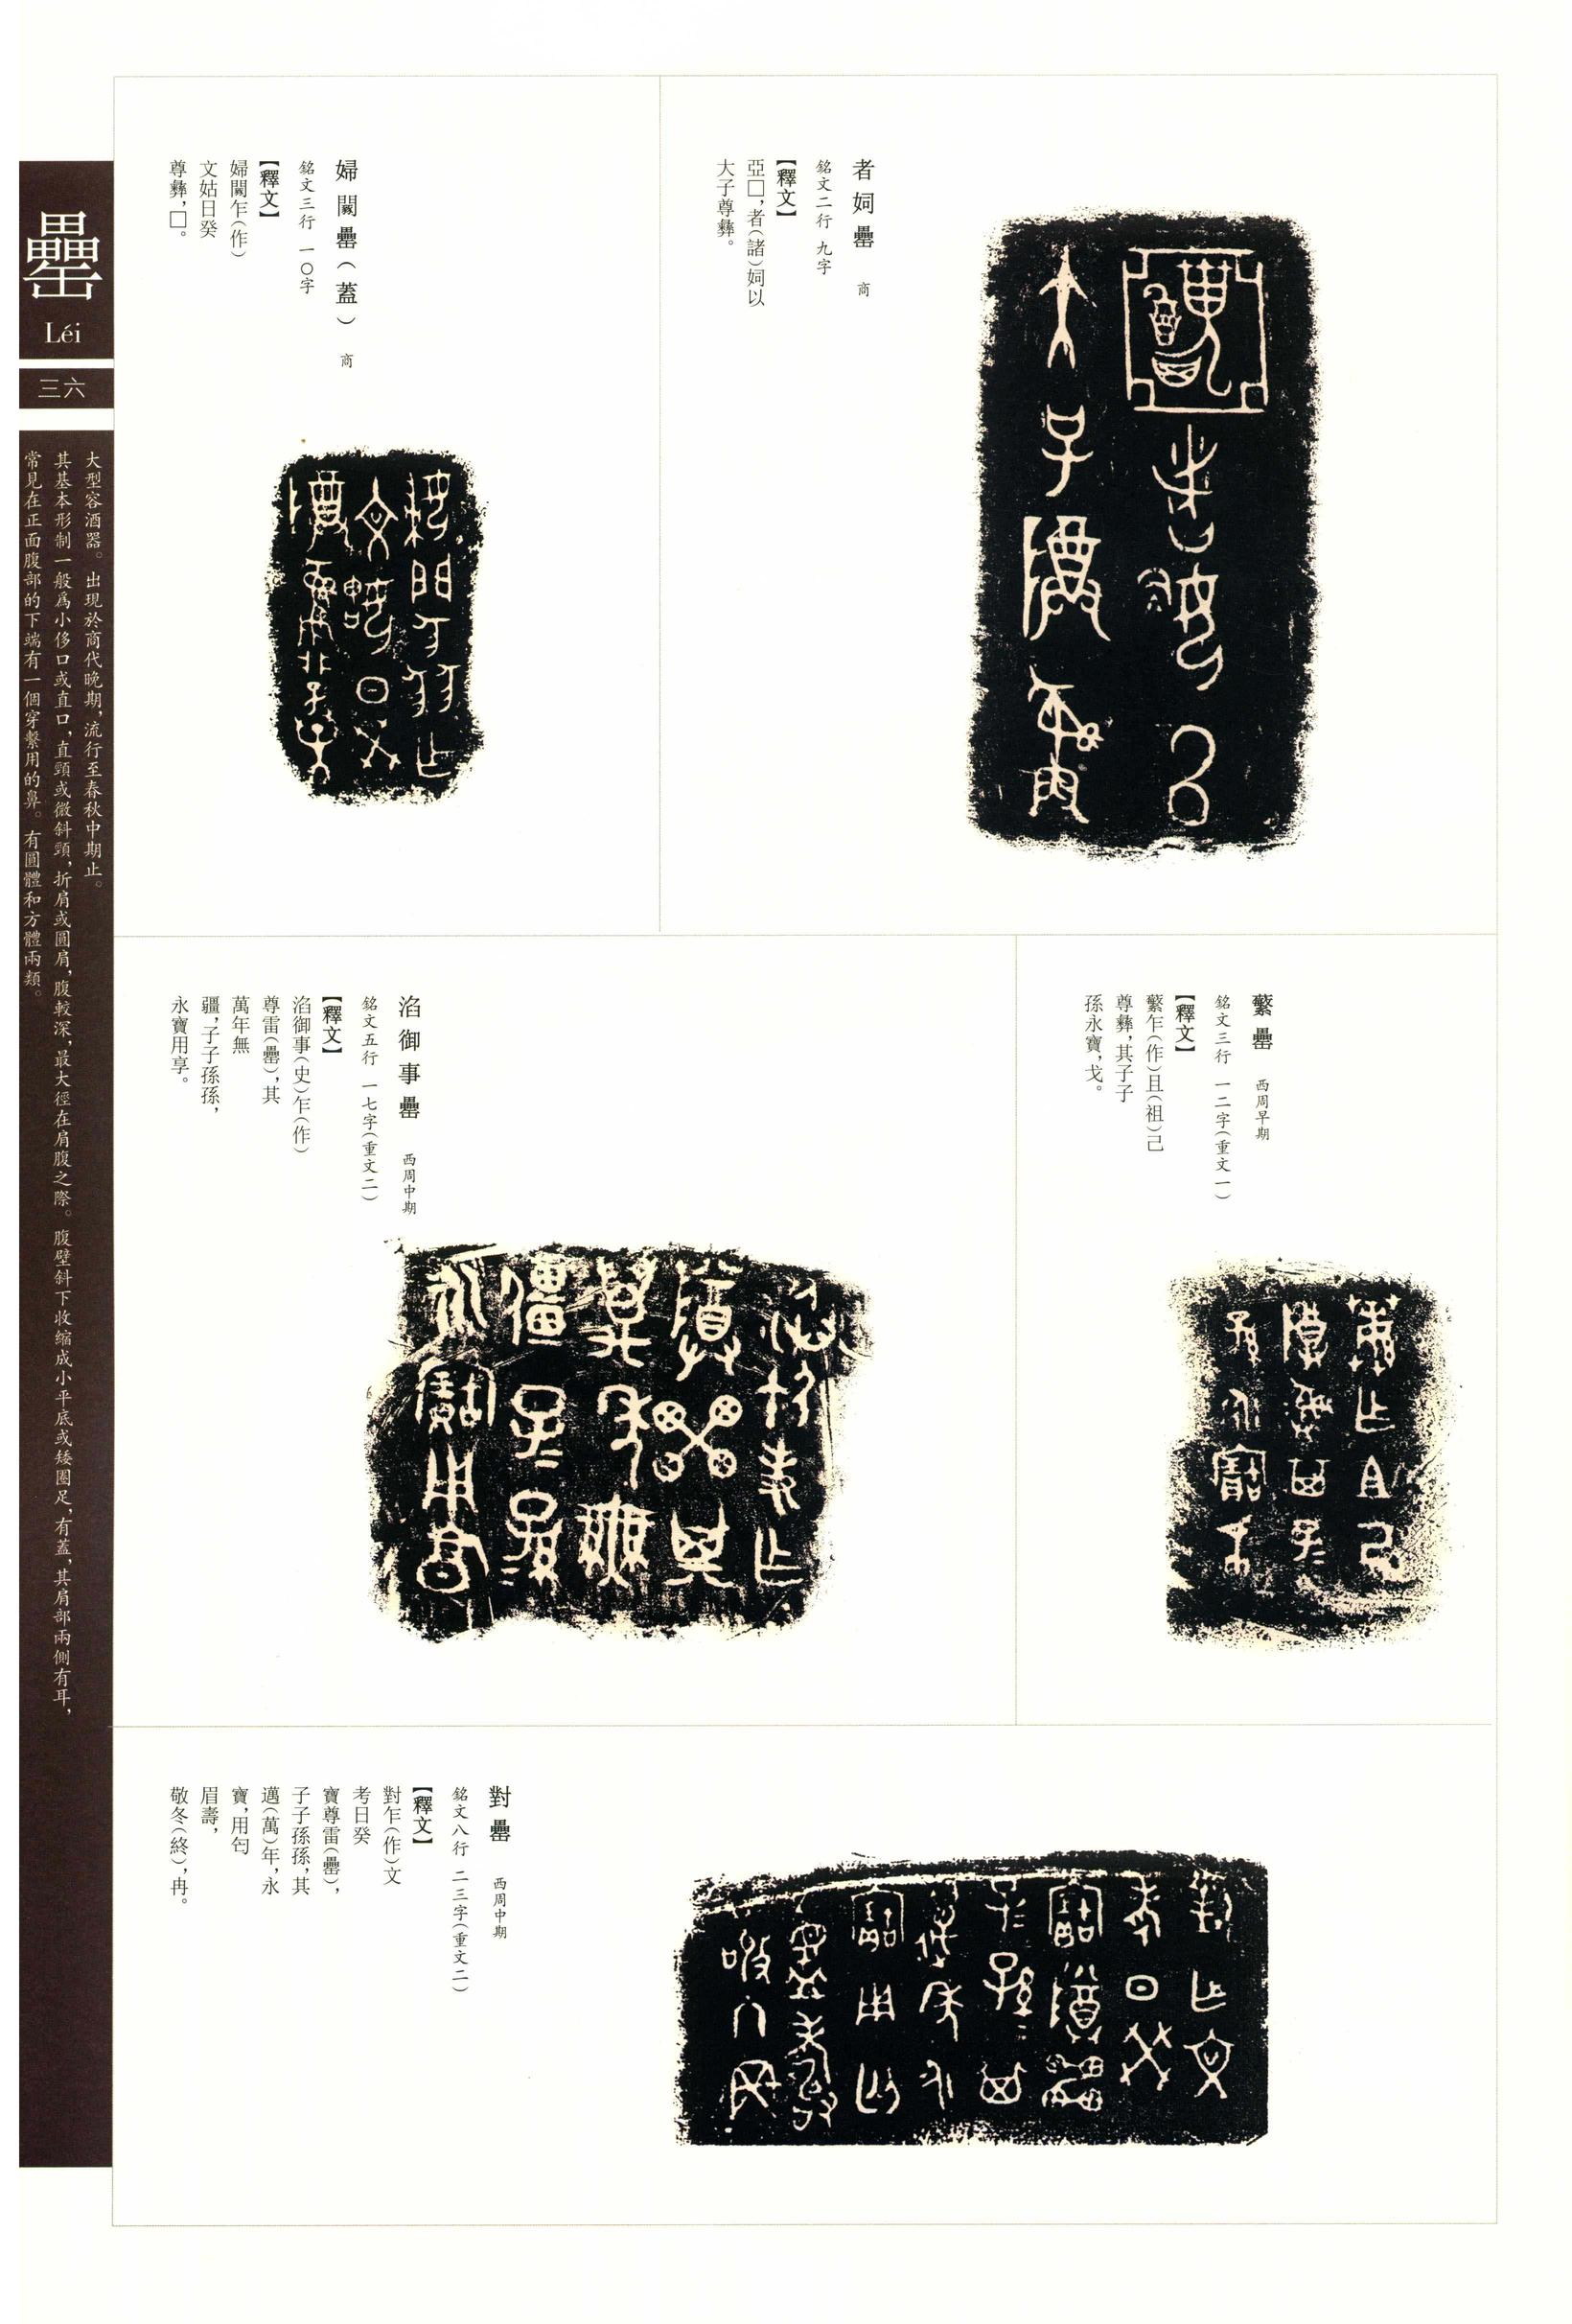 者姛罍　商
銘文二行　九字
【釋文】
亞□，者（諸）姛以
大子尊彝。
婦闌罍（蓋）　商
銘文三行　一〇字
【釋文】
婦闌乍（作）
文姑日癸
尊彝，□。
蘩罍　西周早期
銘文三行　一二字（重文一）
【釋文】
蘩乍（作）且（祖）己
尊彝，其子子
孫永寶，戈。
滔御事罍　西周中期
銘文五行　一七字（重文二）
【釋文】
滔御事（史）乍（作）
尊雷（罍），其
萬年無
疆，子子孫孫，
永寶用享。
對罍　西周中期
銘文八行　二三字（重文二）
【釋文】
對乍（作）文
考日癸
寶尊雷（罍），
子子孫孫，其
邁（萬）年，永
寶，用匄
眉壽，
敬冬（終），冉。
罍
Léi
三六
大型容酒器。出現於商代晚期，流行至春秋中期止。
其基本形制一般爲小侈口或直口，直頸或微斜頸，折肩或圓肩，腹較深，最大徑在肩腹之際。腹壁斜下收缩成小平底或矮圈足，有蓋，其肩部兩側有耳，
常見在正面腹部的下端有一個穿繫用的鼻。有圓體和方體兩類。